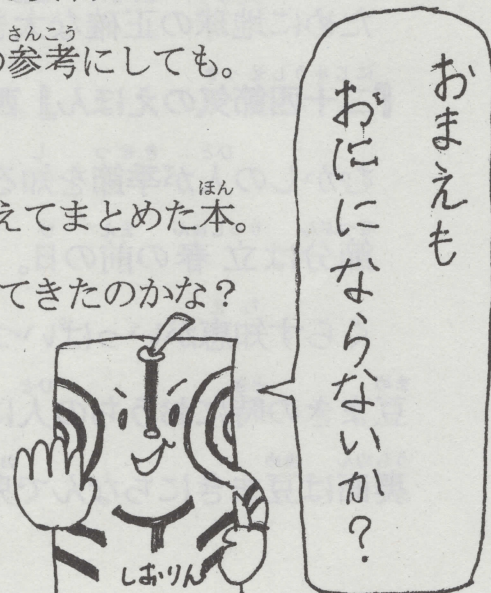 参考にしても。
さんこう
えてまとめた本。
ほん
てきたのかな？
おまえも
おにに ならないか？
しおりん